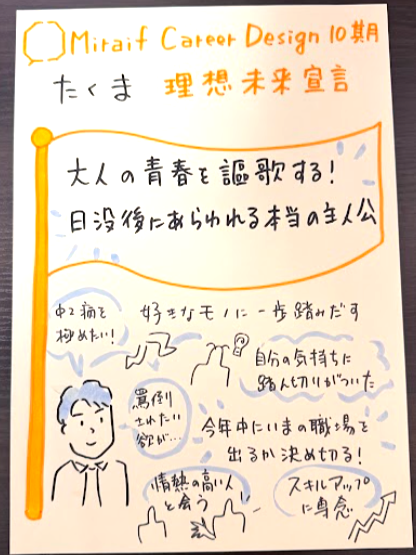 Miraif Career Design 10期
たくま 理想未来宣言
大人の青春を謳歌する!
日没後にあらわれる本当の主人公
中2病を
極めたい!
好きなモノに一歩踏みだす
自分の気持ちに
踏ん切りがついた
罵倒
されたい
欲が…
今年中にいまの職場を
出るか決め切る!
情熱の高い人
と会う
スキルアップ
に専念